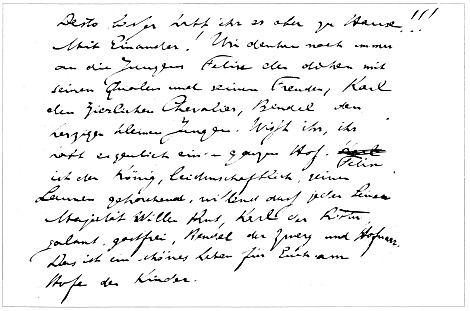 Desto besser habt ihr es aber zu Hause!!!
Mit Einander! Wir denken noch immer
an die Jungens Felix den dicken mit
seinen Qualen und seinen Freuden, Karl
den zierlichen Chevalier, Bendel den
herzigen kleinen Jungen. Wißt ihr, ihr
habt eigentlich einen ganzen Hof. Felix
ist der König, leidenschaftlich, seinen
Launen gehorchend, wütend darf jeder seiner
Majestät Willen thut, Karl der Ritter,
galant, gastfrei, Bendel der Zwerg und Hofnarr.
Das ist ein schönes Leben für Euch am
Hofe der Kinder.